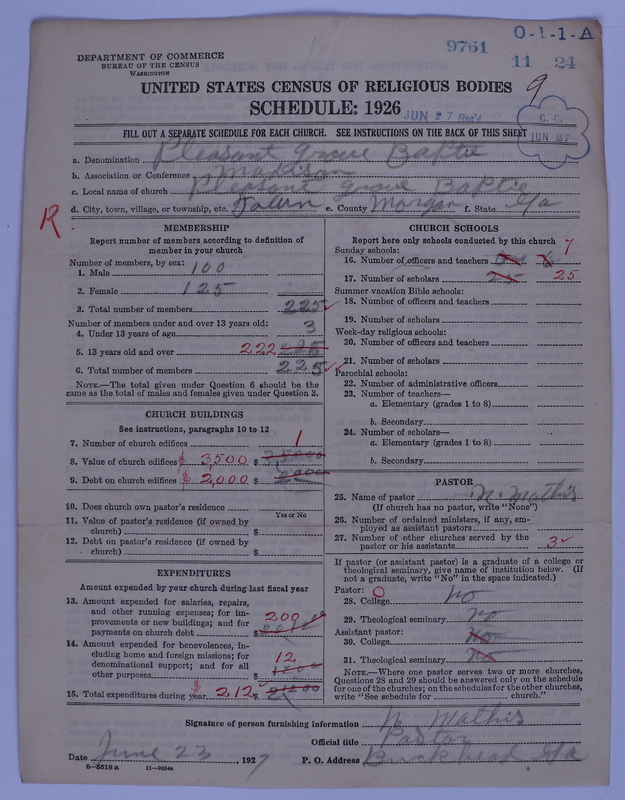 O-1-1-A
9761
11 24
DEPARTMENT OF COMMERCE
BUREAU OF THE CENSUS
WASHINGTON
UNITED STATES CENSUS OF RELIGIOUS BODIES
9
SCHEDULE: 1926
JUN 27 Rec'd
C. C.
JUN 27
FILL OUT A SEPARATE SCHEDULE FOR EACH CHURCH. SEE INSTRUCTIONS ON THE BACK OF THIS SHEET
a. Denomination Pleasant grove Baptie
b. Association or Conference Madison
c. Local name of church Pleasant grove Baptie
d. City, town, village, or township, etc. e. County Morgan f. State Ga
R
MEMBERSHIP
Report number of members according to definition of
member in your church
Number of members, by sex:
1. Male 100
2. Female 125
3. Total number of members 225
Number of members under and over 13 years old:
4. Under 13 years of age 3
5. 13 years old and over 222 225
6. Total number of members 225
NOTE.—The total given under Question 6 should be
the same as the total of males and females given under Question 3.
CHURCH BUILDINGS
See instructions, paragraphs 10 to 12
7. Number of church edifices 1
8. Value of church edifices $ 3,500 $ 35000
9. Debt on church edifices $ 2,000 $ 20000
10. Does church own pastor's residence
Yes or No
11. Value of pastor's residence (if owned by
church) $
12. Debt on pastor's residence (if owned by
church) $
EXPENDITURES
Amount expended by your church during last fiscal year
13. Amount expended for salaries, repairs,
and other running expenses; for im-
provements or new buildings; and for
payments on church debt $ 200
14. Amount expended for benevolences, in-
cluding home and foreign missions; for
denominational support; and for all
other purposes 12 1200
15. Total expenditures during year $ 212 $ 21200
CHURCH SCHOOLS
Report here only schools conducted by this church
Sunday schools:
16. Number of officers and teachers 7
17. Number of scholars 25 25
Summer vacation Bible schools:
18. Number of officers and teachers
19. Number of scholars
Week-day religious schools:
20. Number of officers and teachers
21. Number of scholars
Parochial schools:
22. Number of administrative officers
23. Number of teachers—
a. Elementary (grades 1 to 8)
b. Secondary
24. Number of scholars—
a. Elementary (grades 1 to 8)
b. Secondary
PASTOR
25. Name of pastor N. Mathis
(If church has no pastor, write "None")
26. Number of ordained ministers, if any, em-
ployed as assistant pastors
27. Number of other churches served by the
pastor or his assistants 3
If pastor (or assistant pastor) is a graduate of a college or
theological seminary, give name of institution below. (If
not a graduate, write "No" in the space indicated.)
Pastor: 0
28. College No
29. Theological seminary No
Assistant pastor:
30. College No
31. Theological seminary No
NOTE.—Where one pastor serves two or more churches,
Questions 28 and 29 should be answered only on the schedule
for one of the churches; on the schedules for the other churches,
write "See schedule for church."
Signature of person furnishing information N. Mathis
Official title Pastor
Date June 23, 1927 P. O. Address Buckhead Ga
8—5518 a 11—9054a